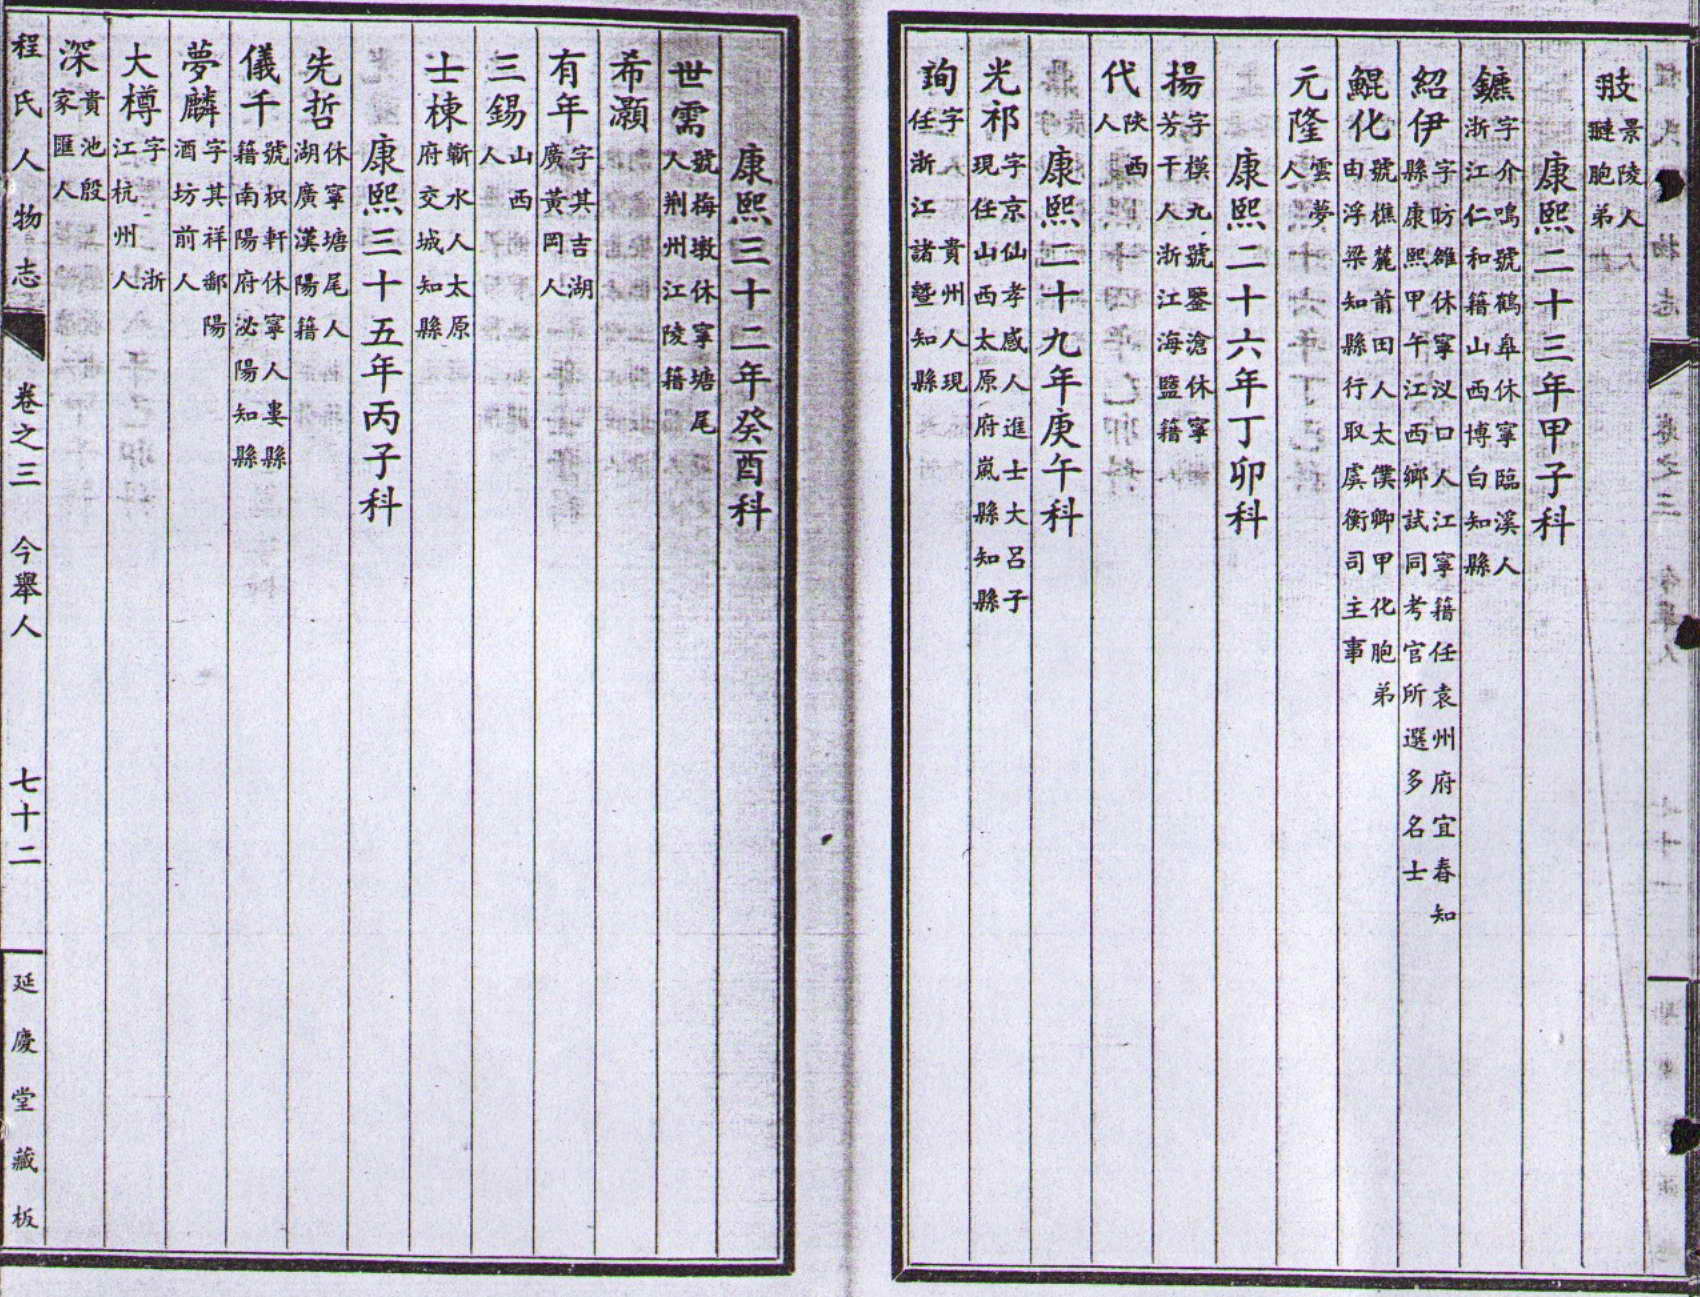 翅景陵人翴胞弟
康熙二十三年甲子科
鑣字介鳴號鶴皐休寧臨溪人浙江仁和籍山西博白知縣
紹伊字昉雒休寧汊口人江寧籍任袁州府宜春知縣康熙甲午江西鄉試同考官所選多名士
鯤化號樵麓莆田人太僕卿甲化胞弟由浮梁知縣行取虞衡司主事
元隆雲夢人
康熙二十六年丁卯科
揚芳字模九號鑒滄休寧干人浙江海鹽籍
代陜西人
康熙二十九年庚午科
光祁字京仙孝感人進士大呂子現任山西太原府嵐縣知縣
詢字貴州人現任浙江諸暨知縣
康熙三十二年癸酉科
世需號梅墩休寧塘尾人荆州江陵籍
希灝
有年字其吉湖廣黃岡人
三錫山西人
士棟蘄水人太原府交城知縣
康熙三十五年丙子科
先哲休寧塘尾人湖廣漢陽籍
儀千號枳軒休寧人婁縣籍南陽府泌陽知縣
夢麟字其祥鄱陽酒坊前人
大樽字浙江杭州人
深貴池殷家匯人
程氏人物志 卷之三 今舉人 七十二 延慶堂藏板